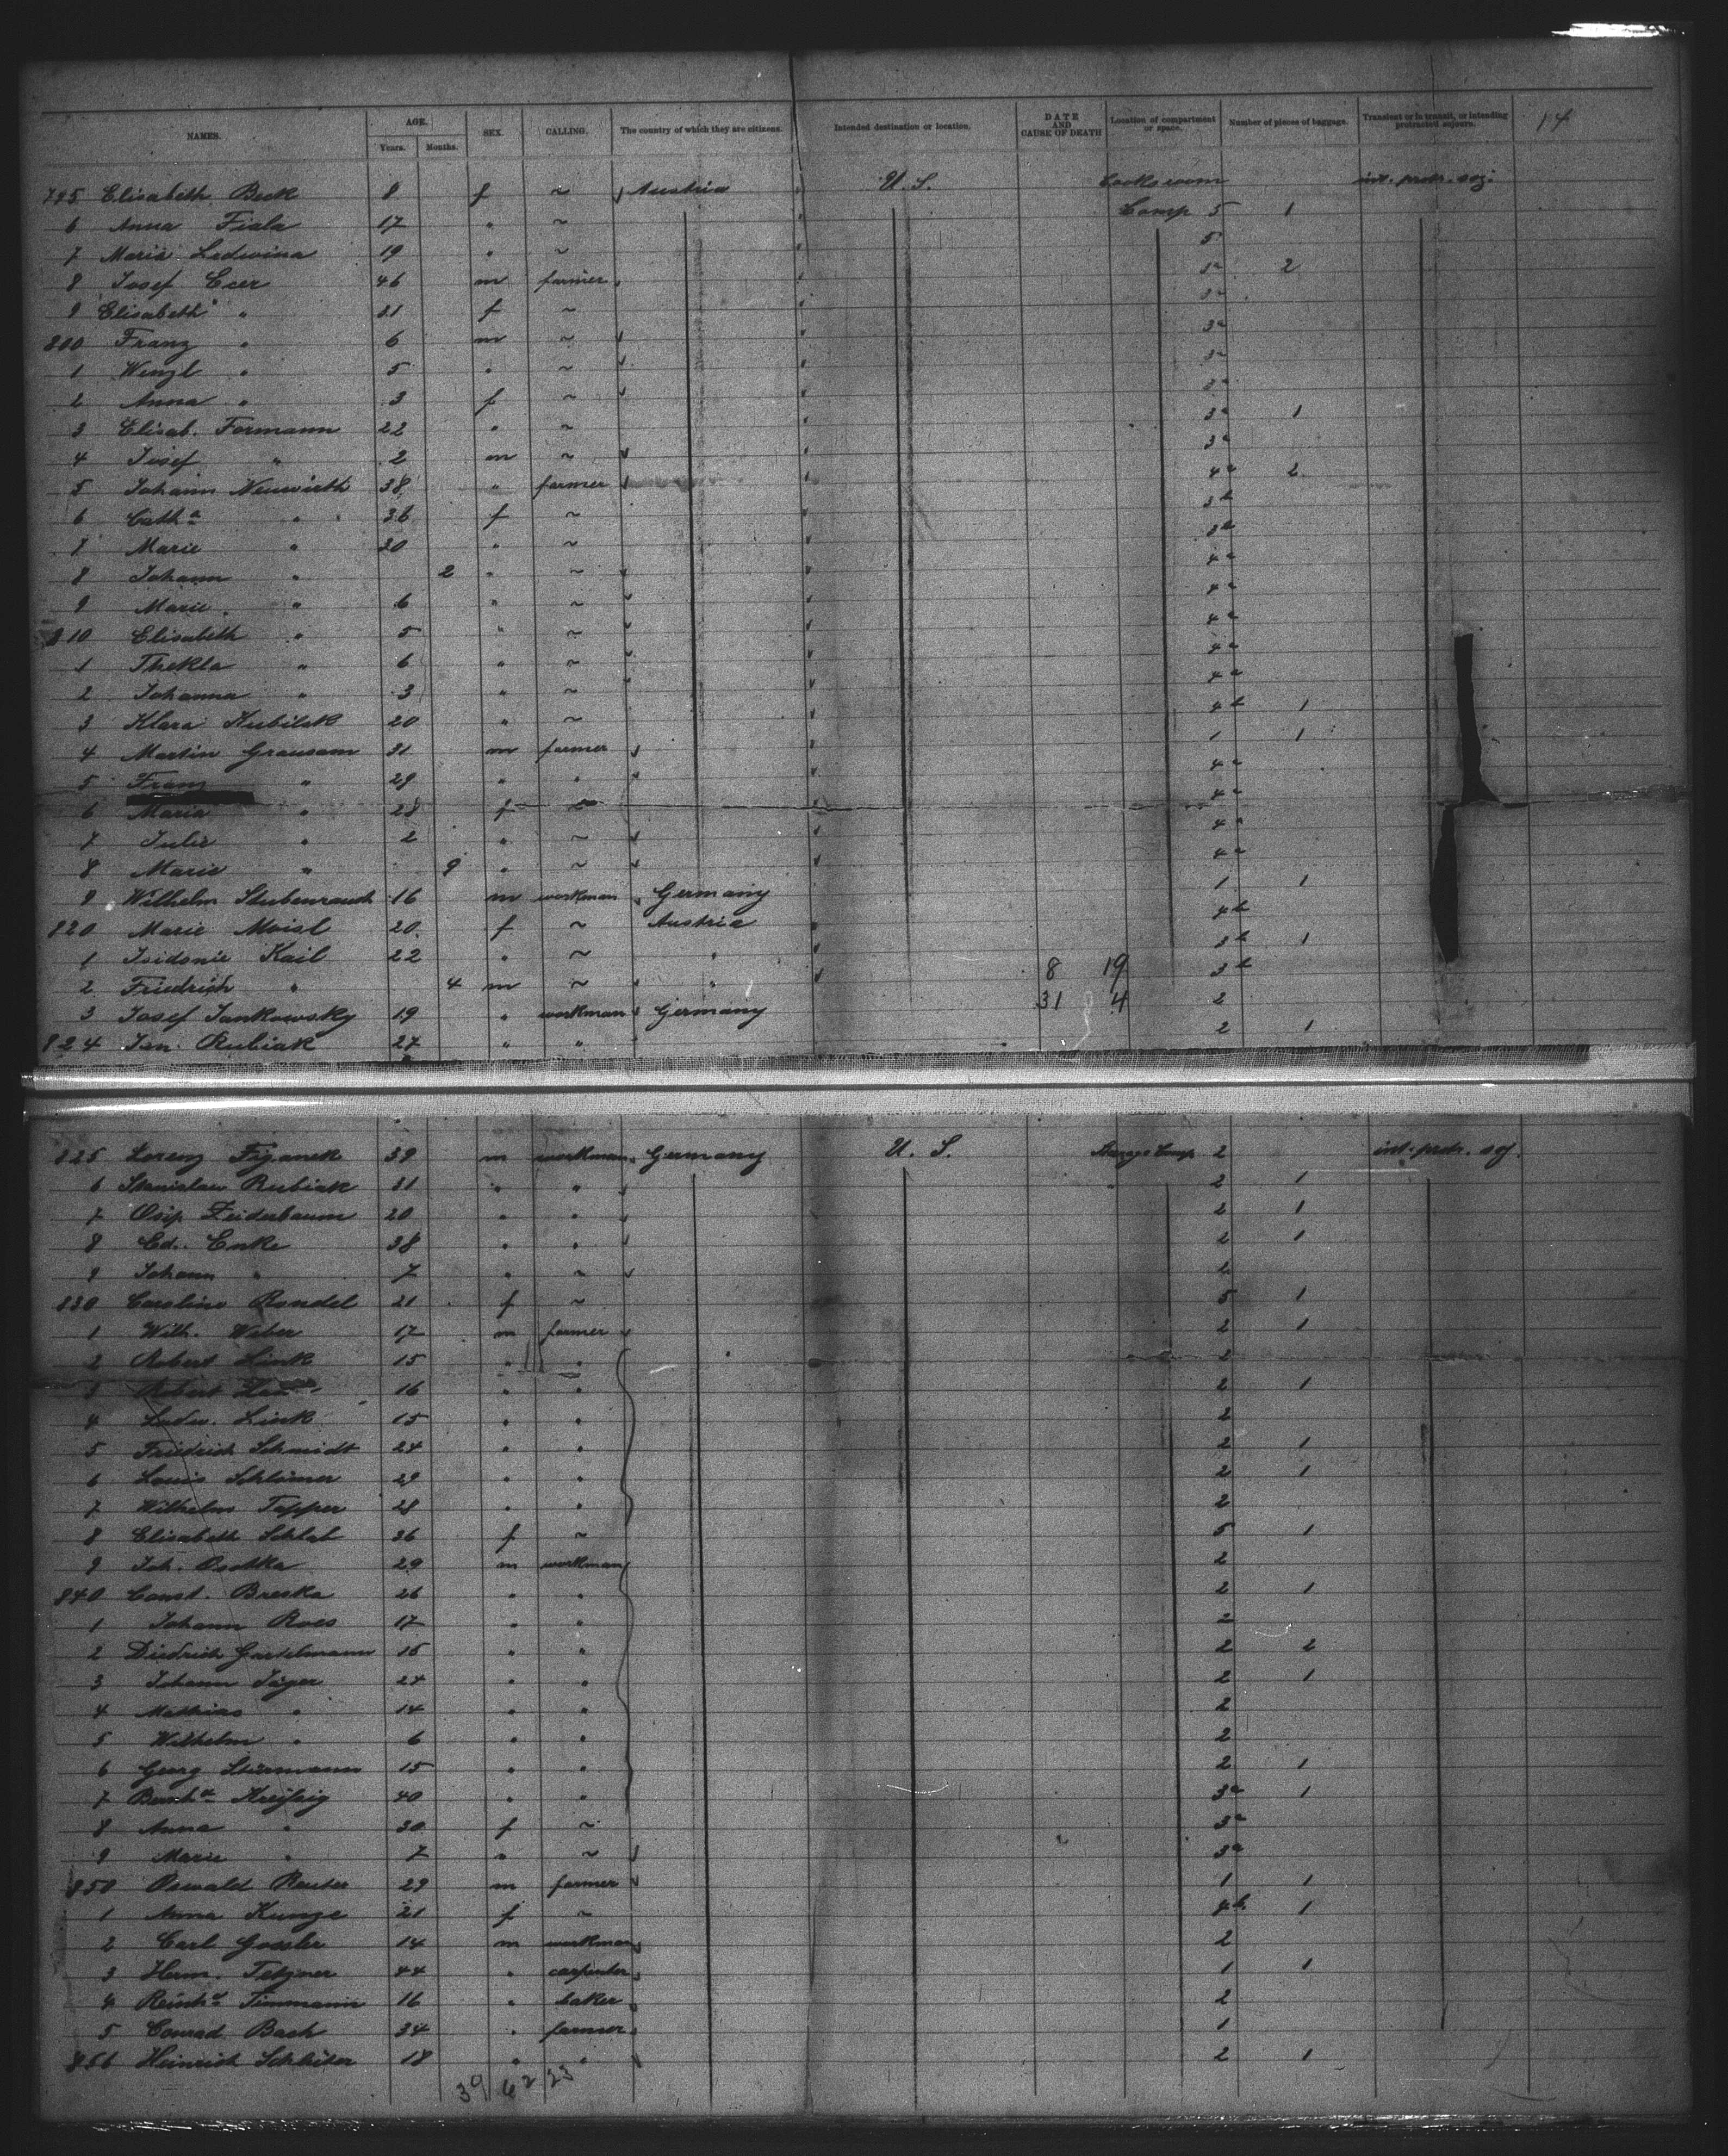 NAMES. AGE. Years. Months. SEX. CALLING. The country of which they are citizens. Intended destination or location. DATE AND CAUSE OF DEATH Location of compartment or space. Number of pieces of baggage. Transient or in transit, or intending protracted sojourn. 14
795 Elisabeth Beck 8 f ~ Austria U. S. int. protr. soj.
6 Anna Fiala 17 " ~ Comp 5 1
7 Maria Ledwina 19 " ~ 5
8 Josef Ecer 46 m farmer 3a 2
9 Elisabeth " 31 f ~ 3a
800 Franz " 6 m ~ 3a
1 Wenzl " 5 " ~ 3a
2 Anna " 3 f ~ 3a
3 Elisab. Formann 22 " ~ 3a 1
4 Josef " 2 m ~ 3a
5 Johann Neuwirth 38 " farmer 4a 2
6 Catha " 36 f ~ 3b
7 Marie " 20 " ~ 3b
8 Johann " 2 " ~ 4a
9 Marie " 6 " ~ 4a
810 Elisabeth " 5 " ~ 4a
1 Thekla " 6 " ~ 4a
2 Johanna " 3 " ~ 4a
3 Klara Kubilek 20 " ~ 4b 1
4 Martin Grausam 31 m farmer 1 1
5 Franz " 29 " " 4a
6 Maria " 28 f ~ 4a
7 Julie " 2 " ~ 4a
8 Marie " 9 " ~ 4a
9 Wilhelm Stubenrauch 16 m workman Germany 1 1
820 Marie Moisl 20 f ~ Austria 4b
1 Isidonie Kail 22 " ~ " 3b 1
2 Friedrich " 4 m ~ " 8 19 3b
3 Josef Jankowsky 19 " workman Germany 31 4 2
824 Jan Rubiak 27 " " 2 1
825 Lorenz Figanek 39 m workman Germany U. S. Steerage Comp 2 int. protr. soj.
6 Stanislaw Rubiak 31 " " 2 1
7 Osip Feiderbaum 20 " " 2 1
8 Ed. Enke 38 " " 2 1
9 Johann " 7 " ~ 2
830 Caroline Rondel 21 f ~ 5 1
1 Wilh. Weber 17 m farmer 2 1
2 Robert Link 15 " " 2
3 Robert 16 " " 2 1
4 Ludw. Link 15 " " 2
5 Friedrich Schmidt 24 " " 2 1
6 Louis Schlömer 29 " " 2 1
7 Wilhelm Tapper 28 " " 2
8 Elisabeth Schlab 36 f ~ 5 1
9 Joh. Osotka 29 m workman 2
840 Const. Breska 26 " " 2 1
1 Johann Roes 17 " " 2
2 Diedrich Gartelmann 15 " " 2 2
3 Johann Jäger 24 " " 2 1
4 Mathias " 14 " " 2
5 Wilhelm " 6 " " 2
6 Georg Stürmann 15 " " 2 1
7 40 " " 3a 1
8 Anna " 30 f ~ 3a
9 Marie " 7 " ~ 3a
850 Oswald Reuter 29 m farmer 1 1
1 Anna Kunze 21 f ~ 4b 1
2 Carl Gossler 14 m workman 2
3 Herm. Tetzner 44 " carpenter 1 1
4 Reinhd Timmann 16 " baker 2
5 Conrad Bach 34 " farmer 1
856 Heinrich Schlüter 18 " " 2 1
39 62 23